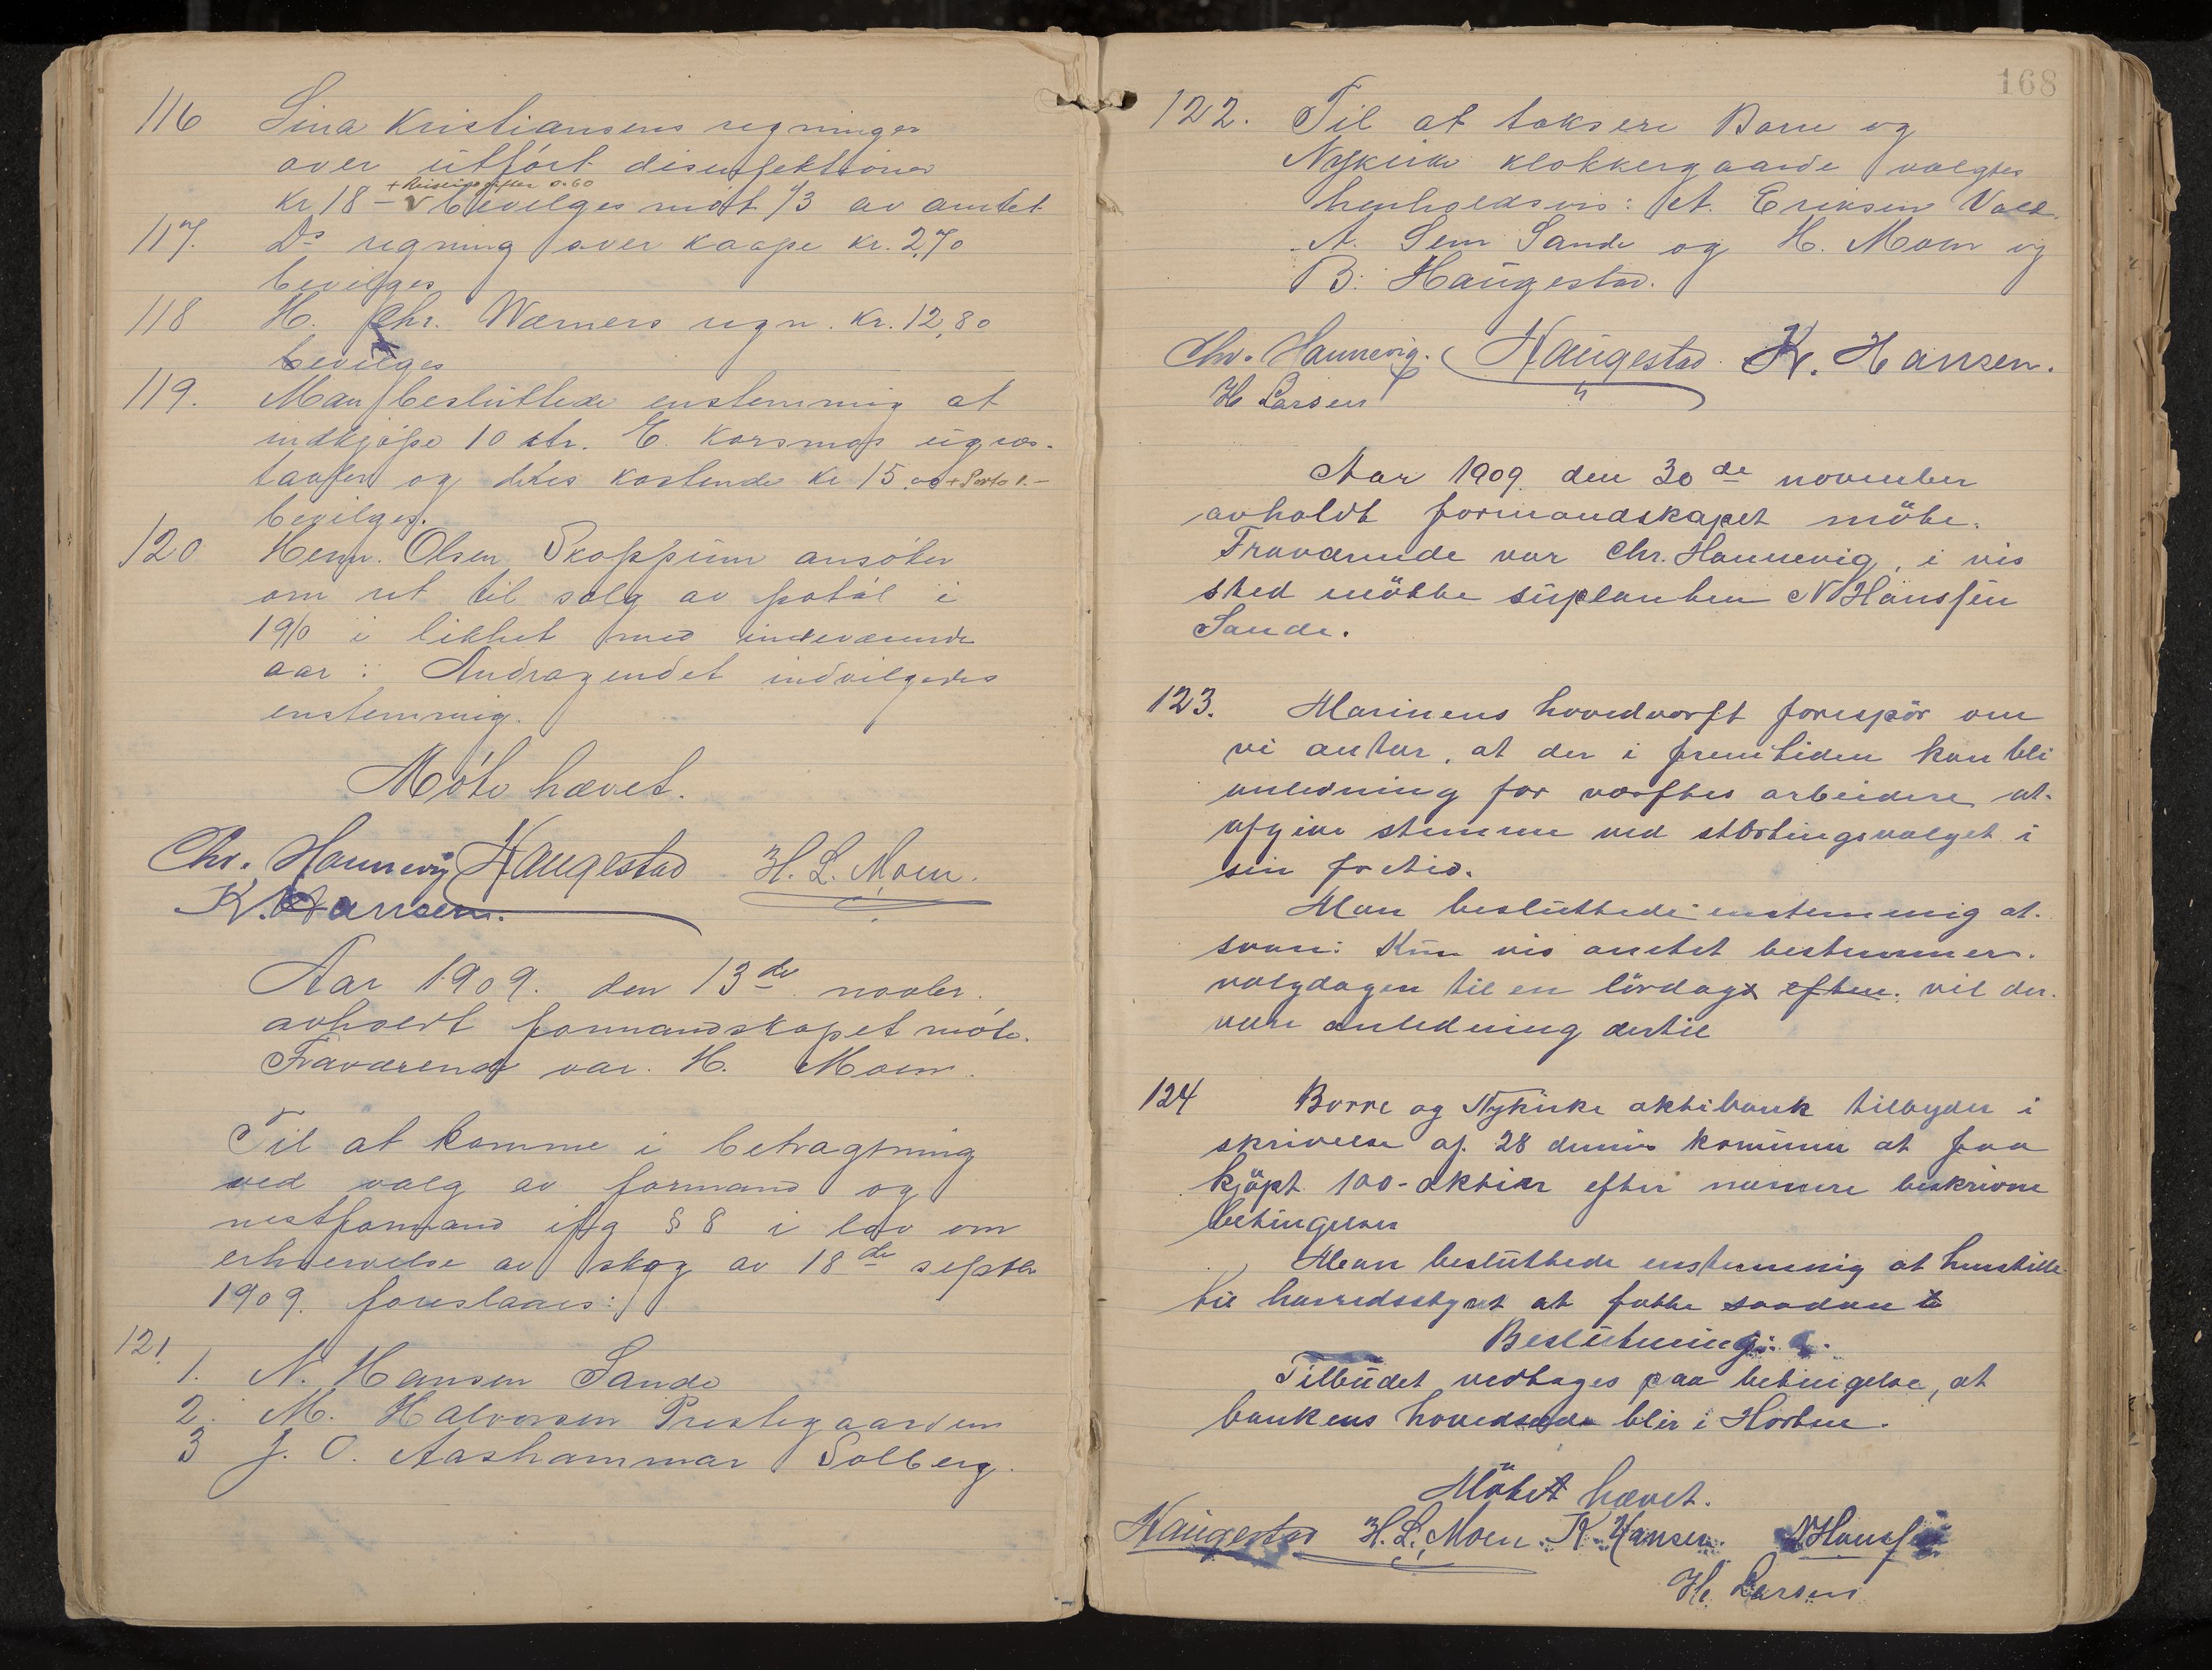 116 Lina Kristiansens regninger
over utført disinfektioner
+ Reiseutgifter 0.60
Kr 18 – bevilges mot 1/3 av amtet
117. Ds regning over kaape kr. 2,70
bevilges
118 H. Chr. Wærners regn. kr. 12,80
bevilges
119. Man besluttede enstemmig at
indkjøpe 10 str. E. Korsmos ugræs-
tavler og dites kostende kr 15,00 + Porto 1.–
bevilges.
120 Henr. Olsen Skoppum ansøker
om ret til salg av patøl i
1910 i likhet med indeværende
aar: Andragendet indvilgedes
enstemmig.
Møte hævet.
Chr. Hannevig Haugestad H. L. Moen.
K. Hansen.
Aar 1909. den 13de novbr.
avholdt formandskapet møte.
Fraværende var H. Moen.
Til at komme i betragtning
ved valg av formand og
nestformand iflg § 8 i lov om
erhvervelse av skog av 18de septbr
1909. foreslaaes:
121.
1. N. Hansen Sande
2. M. Halvorsen Prestegaarden
3 J. O. Aashammar Solberg.
168
122. Til at taksere Borre og
Nykirke klokkergaarde valgtes
henholdsvis: A. Eriksen Vold
A. Sem Sande og H. Moen og
B. Haugestad.
Chr. Hannevig. Haugestad K. Hansen.
H Larsen
Aar 1909 den 30de november
avholdt formandskapet möte.
Fraværende var Chr. Hannevig, i vis
sted mötte suplanten N Hanssen
Sande.
123. Marinens hovedverft forespör om
vi antar, at der i fremtiden kan bli
anledning for verftes arbeidere at
afgive stemme ved stortingsvalget i
sin fritid.
Man besluttede enstemmig at
svare: Kun vis amtet bestemmer
valgdagen til en lördags eften. vil der
være anledning dertil
124 Borre og Nykirke aktiebank tilbyder i
skrivelse af 28 dennes kommunen at faa
kjöpt 100 - aktier efter nærmere beskrivne
betingelser
Man besluttede enstemmig at henstille
til herredsstyret at fatte saadan
Beslutning:
Tilbudet vedtages paa betingelse, at
bankens hovedsæde blir i Horten.
Mötet hævet.
Haugestad H. L. Moen K. Hansen. N Hanssen
H. Larsen